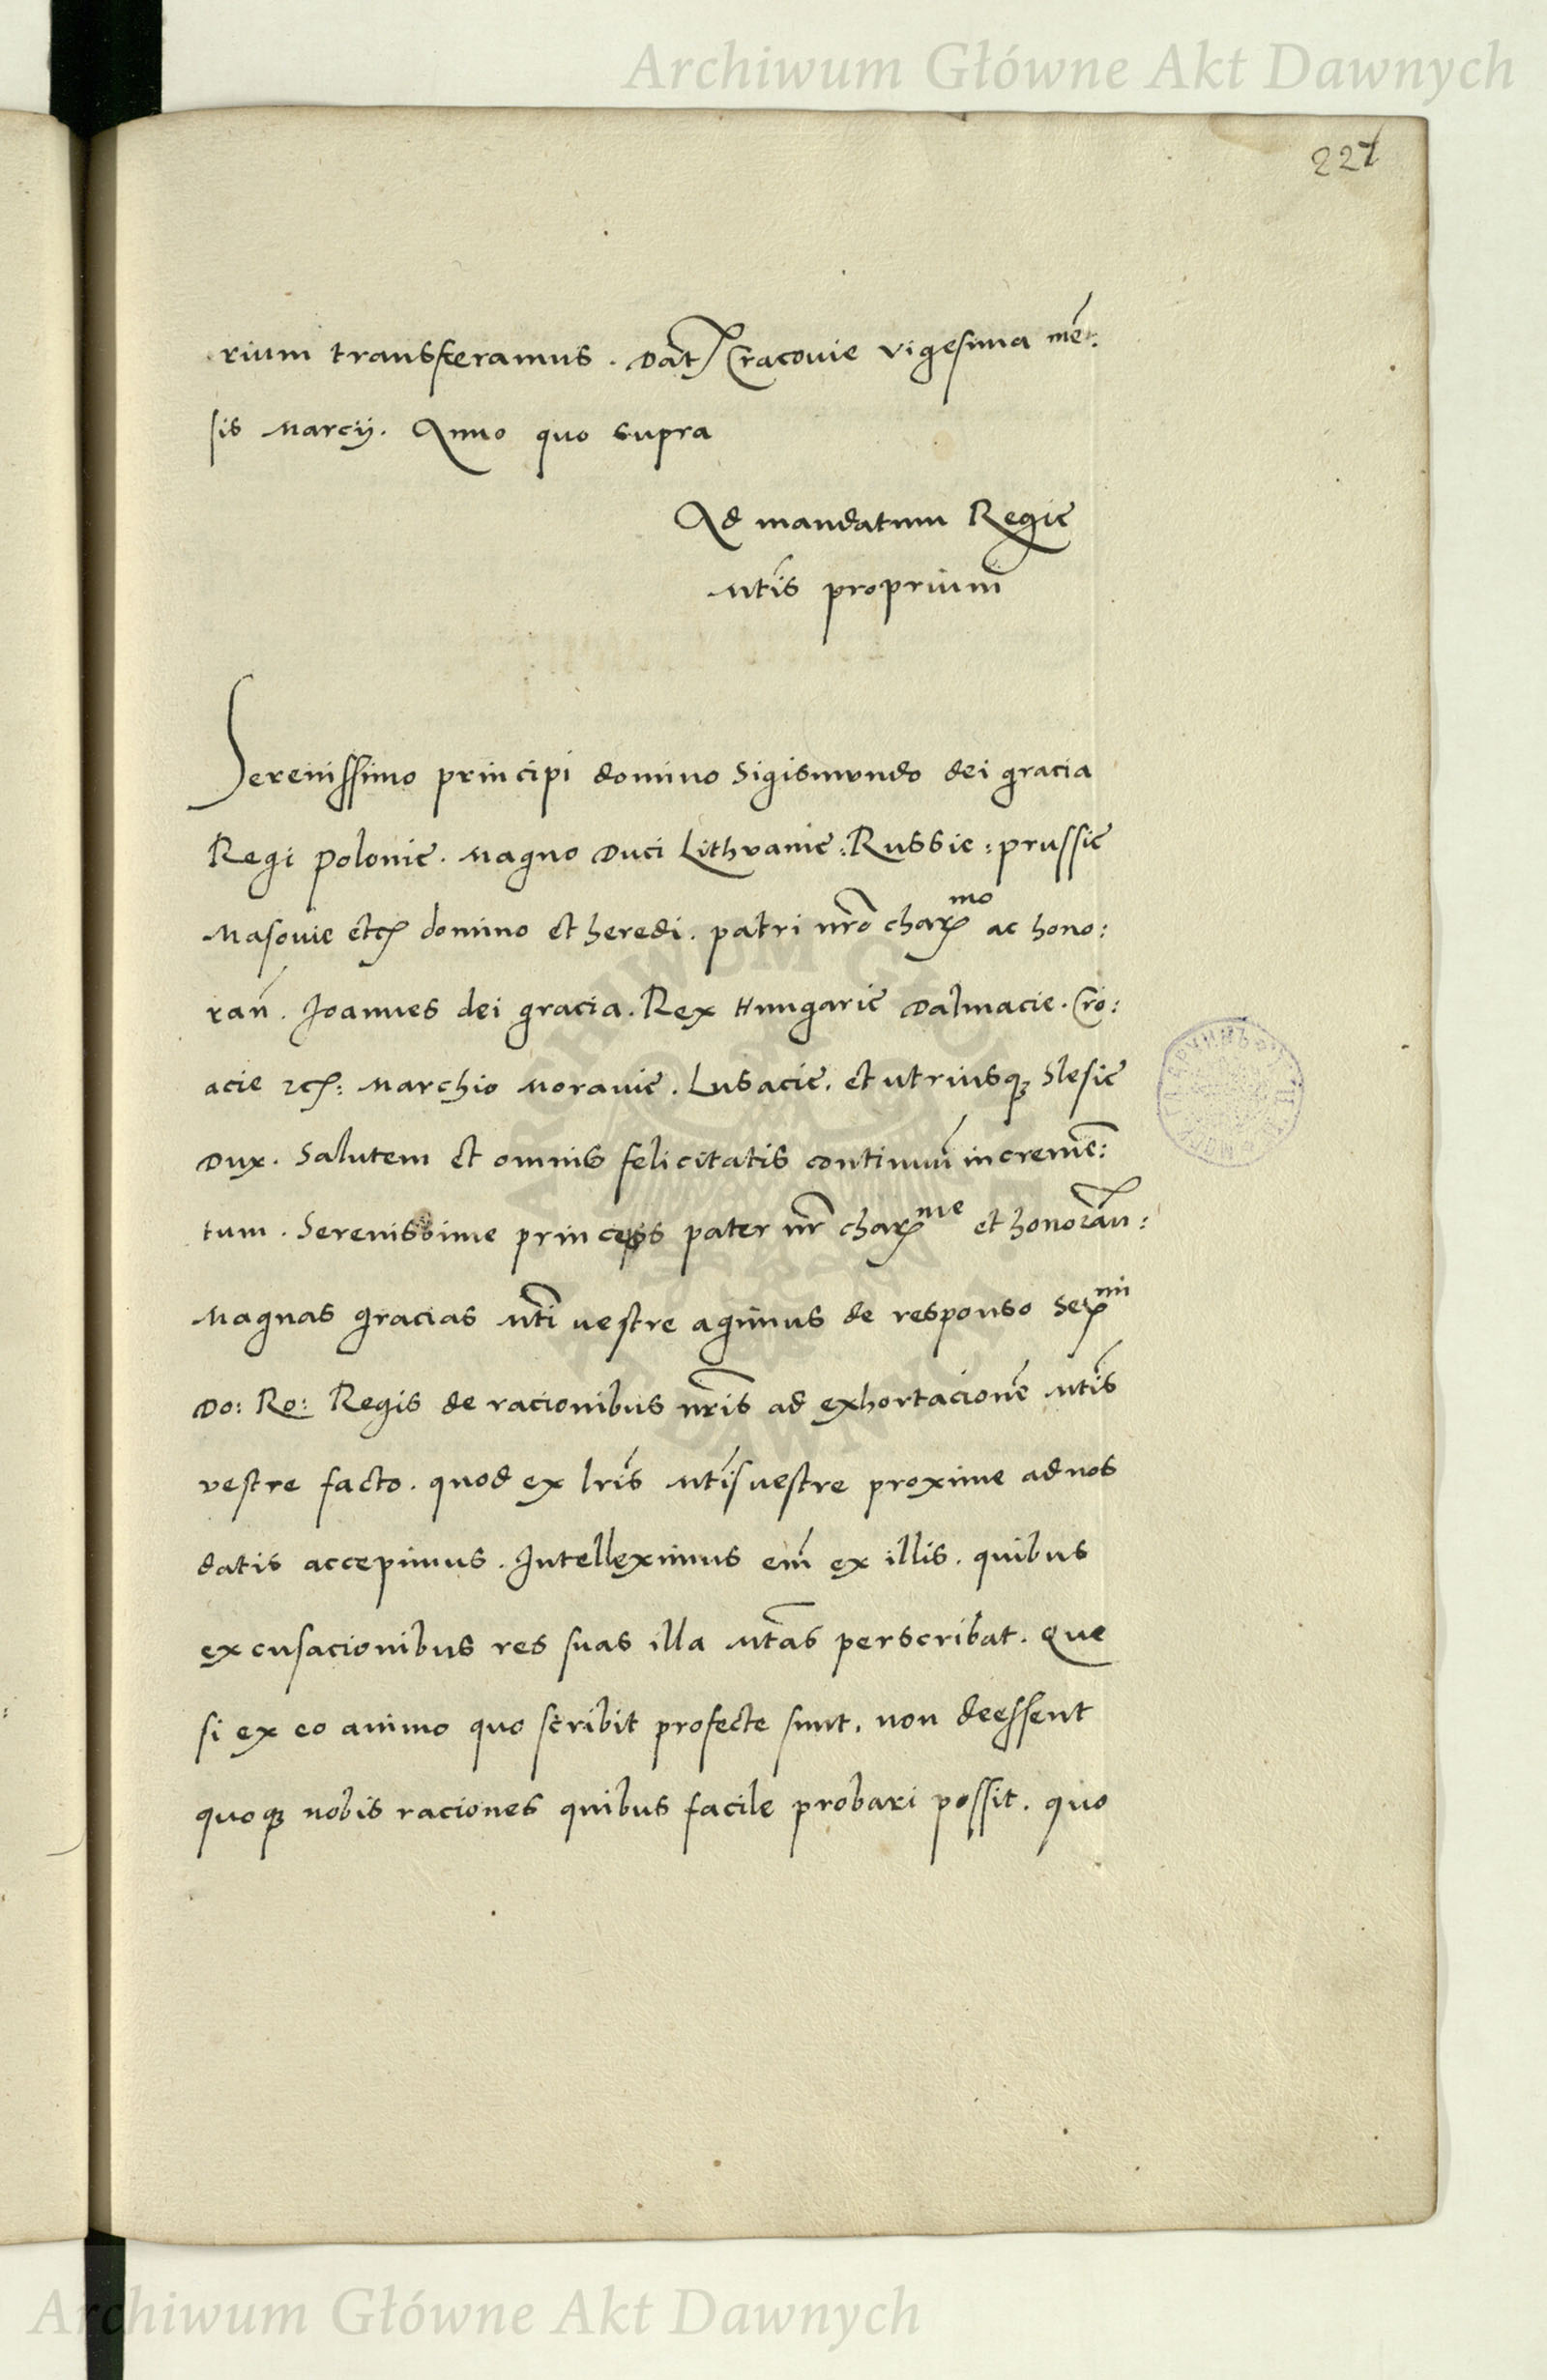 Archiwum Główne Akt Dawnych
227
rium transferamus. Dat Cracouie vigesima mē:
sis Marcij. Anno quo supra
Ad mandatum Regie
Mtis proprium
Serenissimo principi domino Sigismundo dei gracia
Regi Polonie. Magno Duci Lithvanie: Russie: prussie
Masouie etc domino et heredi. patri nro charmo ac hono:
ran. Joannes dei gracia. Rex Hungarie Dalmacie. Cro:
acie etc: Marchio Morauie. Lusacie. et utriusq Slesie
Dux. Salutem et omnis felicitatis continuum increme:
tum. Serenissime princeps pater nr charme et honoran:
Magnas gracias Mti uestre agimus de responso Sermi
Do: Ro: Regis de racionibus nris ad exhortacione Mtis
vestre facto. quod ex lris Mtis uestre proxime ad nos
datis accepimus. Intelleximus em ex illis. quibus
excusacionibus res suas illa Mtas perscribat. Que
si ex eo animo quo scribit profecte sunt. non deessent
quoq nobis raciones quibus facile probari possit. quo
ARCHIWUM GŁÓWNE AKT DAWNYCH
Archiwum Główne Akt Dawnych